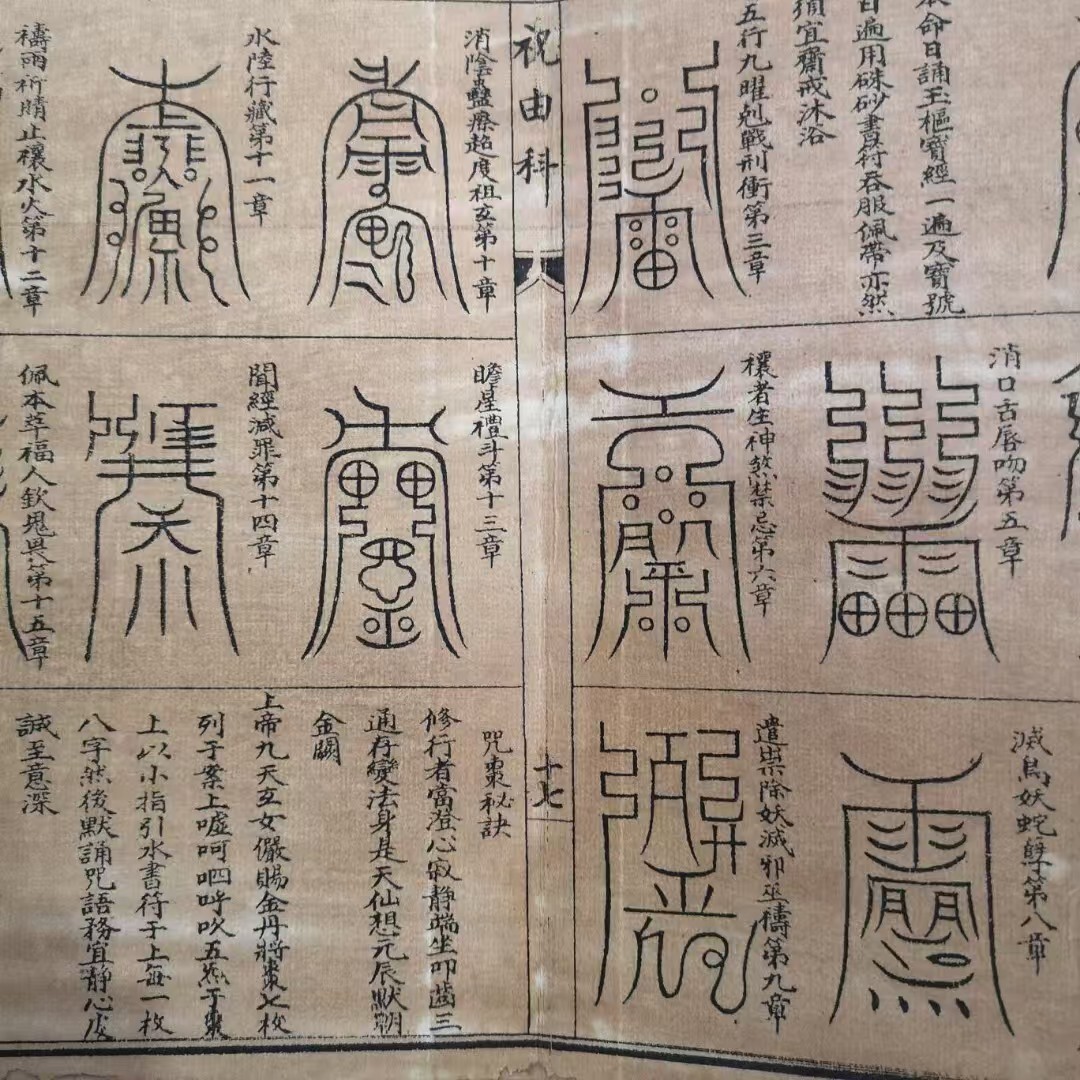 本命日誦玉樞寶經一遍及寶號
百遍用硃砂書符吞服佩帶亦然
須宜齋戒沐浴
五行九曜剋戰刑衝第三章
消口舌唇吻第五章
穰者生神煞禁忌第六章
滅鳥妖蛇孽第八章
遣祟除妖滅邪巫禱第九章
祝由科
十七
消陰蠱療超度祖玄第十章
水陸行藏第十一章
禱雨祈晴止穰水火第十二章
瞻星禮斗第十三章
聞經減罪第十四章
佩本萃福人欽鬼畏第十五章
咒棗秘訣
修行者當澄心寂靜端坐叩齒三
通存變法身是天仙想元辰默朝
金闕
上帝九天玄女儼賜金丹將棗七枚
列于案上噓呵呬呼吹五炁于棗
上以小指引水書符于上每一枚
八字然後默誦咒語務宜靜心皮
誠至意深